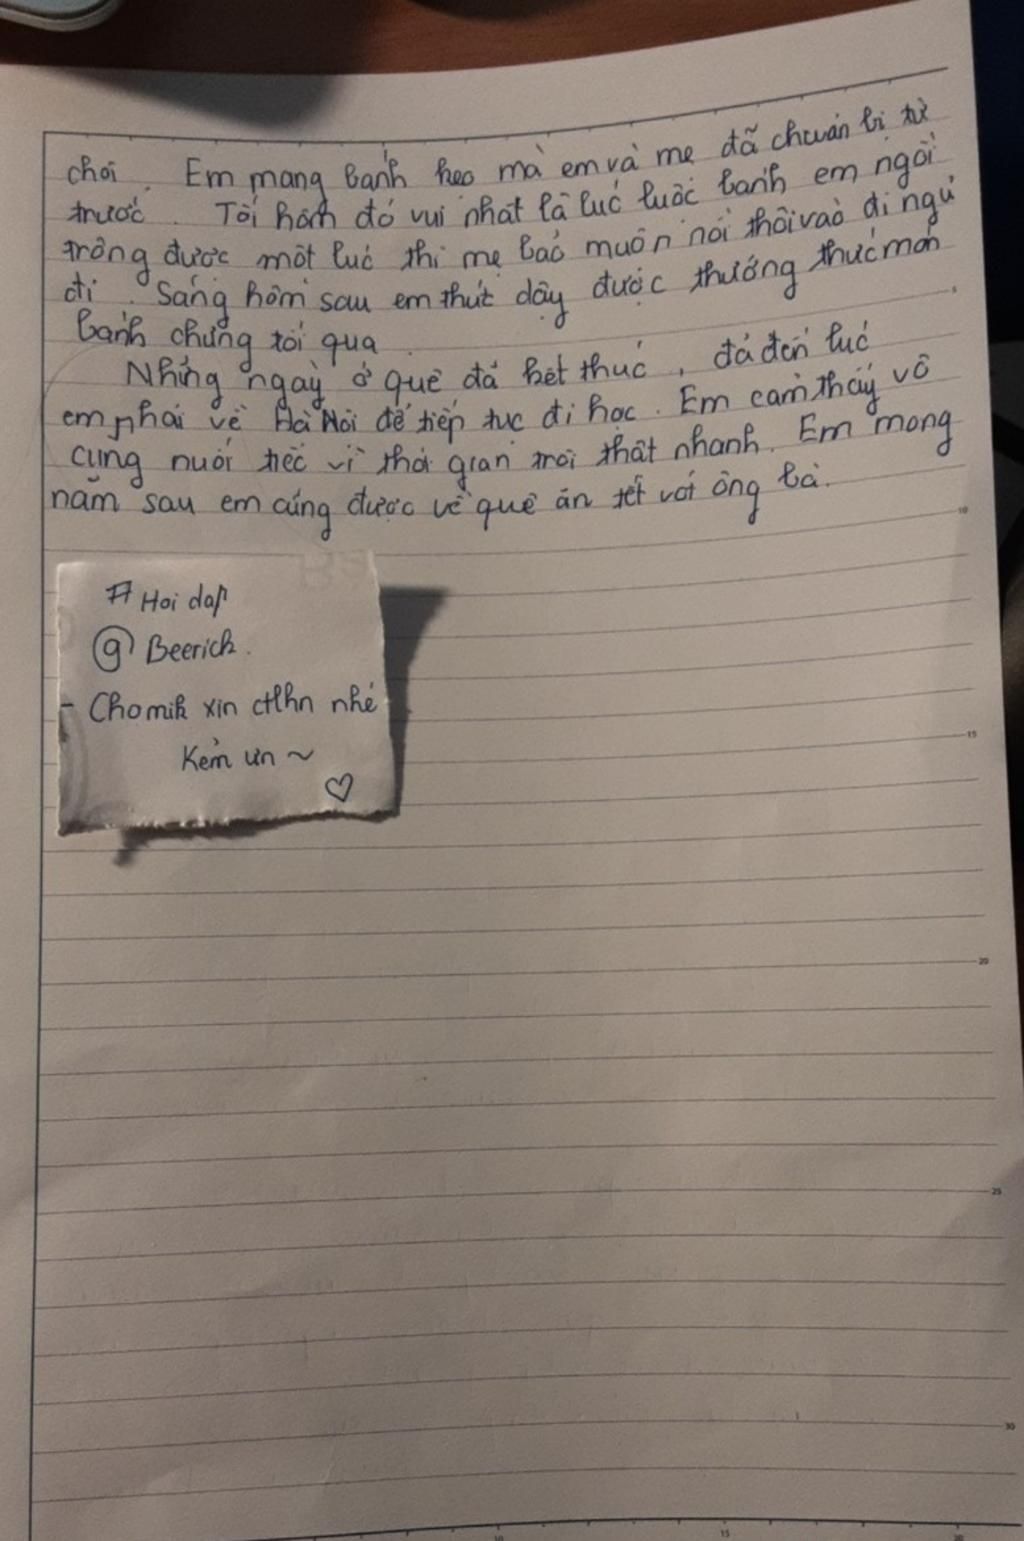 chơi. Em mang bánh kẹo mà em và mẹ đã chuẩn bị từ
trước. Tối hôm đó vui nhất là lúc luộc bánh em ngồi
trông được một lúc thì mẹ bảo muộn nói thôi vào đi ngủ
đi. Sáng hôm sau em thức dậy được thưởng thức món
bánh chưng tối qua.
Những ngày ở quê đã kết thúc, đã đến lúc
em phải về Hà Nội để tiếp tục đi học. Em cảm thấy vô
cùng nuối tiếc vì thời gian trôi thật nhanh. Em mong
năm sau em cũng được về quê ăn tết với ông bà.
10
# Hoi dap
@ Beerich.
- Cho mik xin ctlhn nhé
Kẻm ưn ~
♡
15
20
25
30
10 15 20